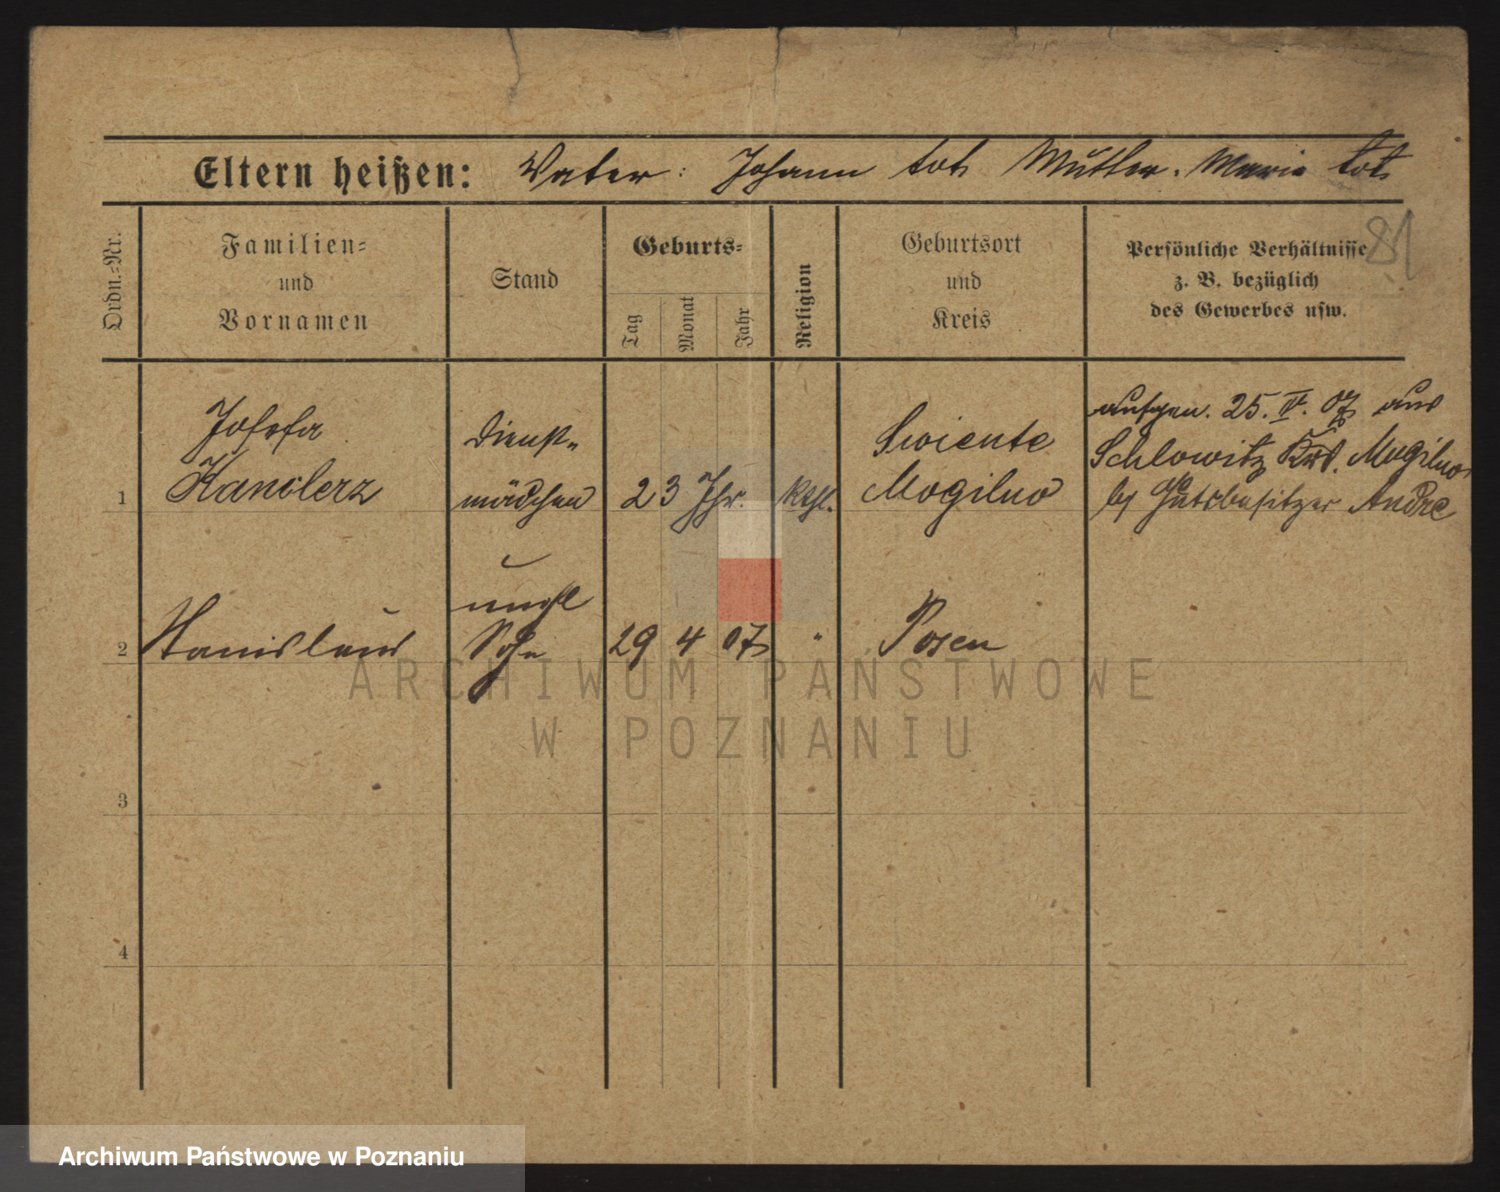 Eltern heißen: Vater: Johann tot Mutter. Maria tot
81
Ordn.-Nr.
Familien-
und
Vornamen
Stand
Geburts-
Tag
Monat
Jahr
Religion
Geburtsort
und
Kreis
Persönliche Verhältnisse
z. B. bezüglich
des Gewerbes usw.
1
Josefa
Kanclerz
Dienst-
mädchen
23 Jhr.
kthl.
Swiente
Mogilno
aufgen. 25. IV. 07 aus
Schlowitz Krs. Mogilno
bei Gutsbesitzer Andre
2
Stanislaus
unehl
Sohn
29 4 07
"
Posen
3
4
ARCHIWUM PAŃSTWOWE
W POZNANIU
Archiwum Państwowe w Poznaniu